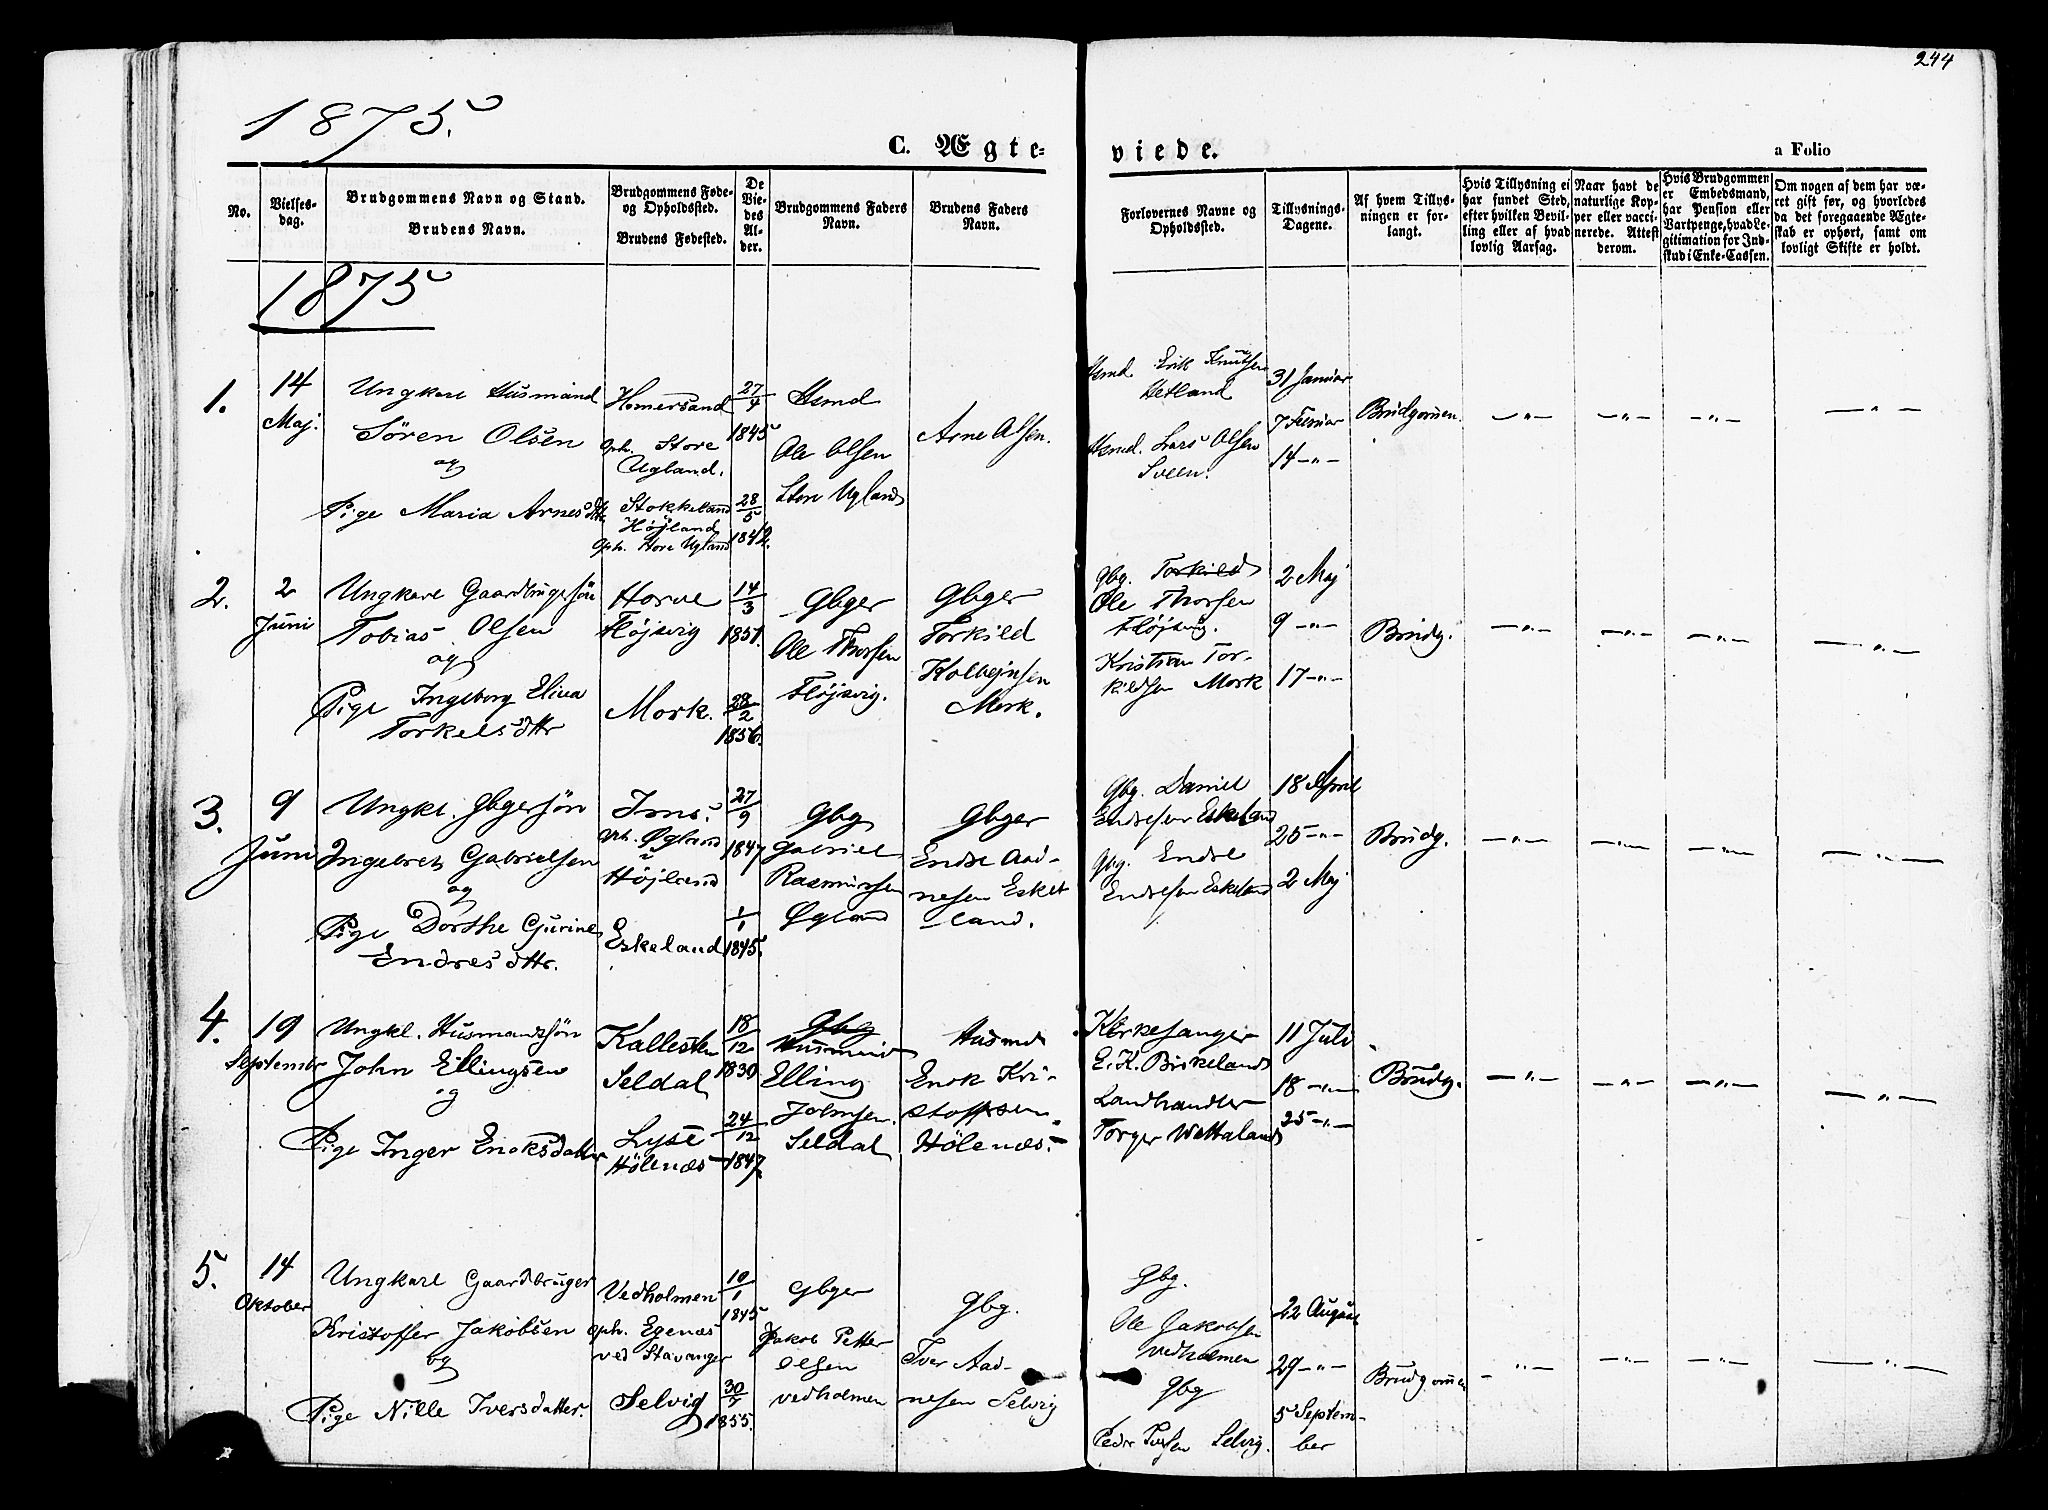 244
1875.
C. Ægte-
viede.
a Folio
No.
Vielses-
dag.
Brudgommens Navn og Stand.
Brudens Navn.
Brudgommens Føde-
og Opholdssted.
Brudens Fødested.
De
Vie-
des
Al-
der.
Brudgommens Faders
Navn.
Brudens Faders
Navn.
Forlovernes Navne og
Opholdssted.
Tillysnings-
Dagene.
Af hvem Tillys-
ningen er for-
langt.
Hvis Tillysning ei
har fundet Sted,
efter hvilken Bevil-
ling eller af hvad
lovlig Aarsag.
Naar havt de
naturlige Kop-
per eller vacci-
nerede. Attest
derom.
Hvis Brudgommen
er Embedsmand,
har Pension eller
Vartpenge, hvad Le-
gitimation for Ind-
skud i Enke-Cassen.
Om nogen af dem har væ-
ret gift før, og hvorledes
da det foregaaende Ægte-
skab er ophørt, samt om
lovligt Skifte er holdt.
1875
1.
14
Maj.
Ungkarl Husmand
Sören Olsen
og
Pige Maria Arnesdttr
Homersand
oph. Store
Ugland.
Stokkeland
Højland
oph. Store Ugland
27/4
1845
28/5
1842.
Hsmd
Ole Olsen
Store Ugland
Arne Olsen.
Hsmd. Erik Knutsen
Hetland
Hsmd. Lars Olsen
Sveen.
31 Januar
7 Februar
14 -"-
Brudgomen.
-"-
-"-
-"-
-"-
2.
2
Juni
Ungkarl Gaardbrugersön
Tobias Olsen
og
Pige Ingeborg Elina
Torkelsdttr
Horve
Fløjsvig
Mork.
14/3
1851.
28/2
1856.
Gbger
Ole Thorsen
Fløjsvig.
Gbger
Torkild
Kolbejnsen
Mork.
Gbg. Torkild
Ole Thorsen
Fløjsvig.
Kristian Tor-
kildsen Mork
2 Maj
9 -"-
17 -"-
Brudg.
-"-
-"-
-"-
-"-
3.
9
Juni
Ungkl. Gbgersön
Ingebret Gabrielsen
og
Pige Dorthe Gurine
Endresdttr.
Ims.
oph. Øgland
i
Højland
Eskeland
27/9
1847
1/1
1845.
Gbg
Gabriel
Rasmussen
Øgland
Gbger
Endre Aad-
nesen Eske-
land.
Gbg. Daniel
Endresen Eskeland
Gbg. Endre
Endresen Eskeland
18 April
25 -"-
2 Maj
Brudg.
-"-
-"-
-"-
-"-
4.
19
September
Ungkl. Husmandssön
John Ellingsen
og
Pige Inger Enoksdatter
Kallesten
Seldal
Lyse
Hölenæs
18/12
1830
24/12
1847.
Gbg
Husmand
Elling
Johnsen.
Seldal
Husmd
Enok Kri-
stoffersen
Hölenæs.
Kirkesanger
E. K. Birkeland
Landhandler
Torger Wettaland
11 Juli
18 -"-
25 -"-
Brudg.
-"-
-"-
-"-
-"-
5.
14
Oktober
Ungkarl Gaardbruger
Kristoffer Jakobsen
og
Pige Nille Iversdatter.
Vedholmen
oph. Egenæs
ved Stavanger
Selvig
10/1
1845
1855.
Gbger
Jakob Petter
Olsen
Vedholmen
Gbg.
Iver Aad-
nesen Selvig
Gbg.
Ole Jakobsen
Vedholmen
Gbg
Peder Iversen Selvig.
22 August
29 -"-
5 Septem-
ber
Brudgommen
-"-
-"-
-"-
-"-